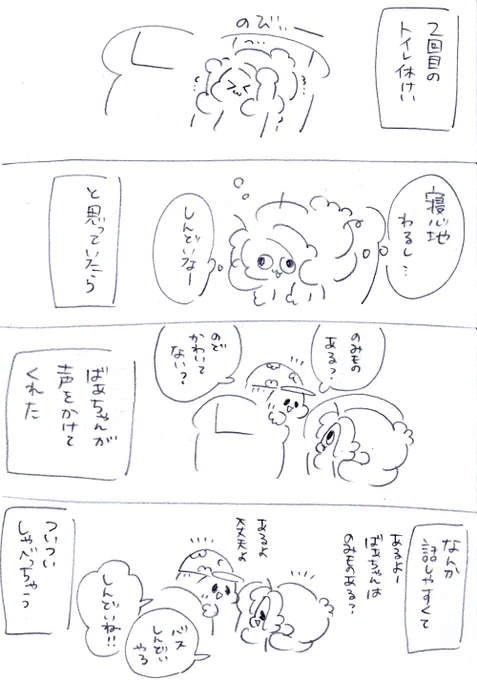 2回目の
トイレ休けい
のび…ー
寝心地
わるし…
しんどいなー
と思っていたら
のみもの
ある？
のど
かわいて
ない？
ばあちゃんが
声をかけて
くれた
なんか
話しやすくて
あるよー
ばあちゃんは
のみものある？
あるよ
大丈夫よ
バス
しんどい
やろ
しんどいね!!
ついつい
しゃべっちゃう